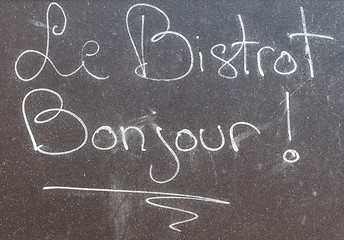 Le Bistrot
Bonjour !